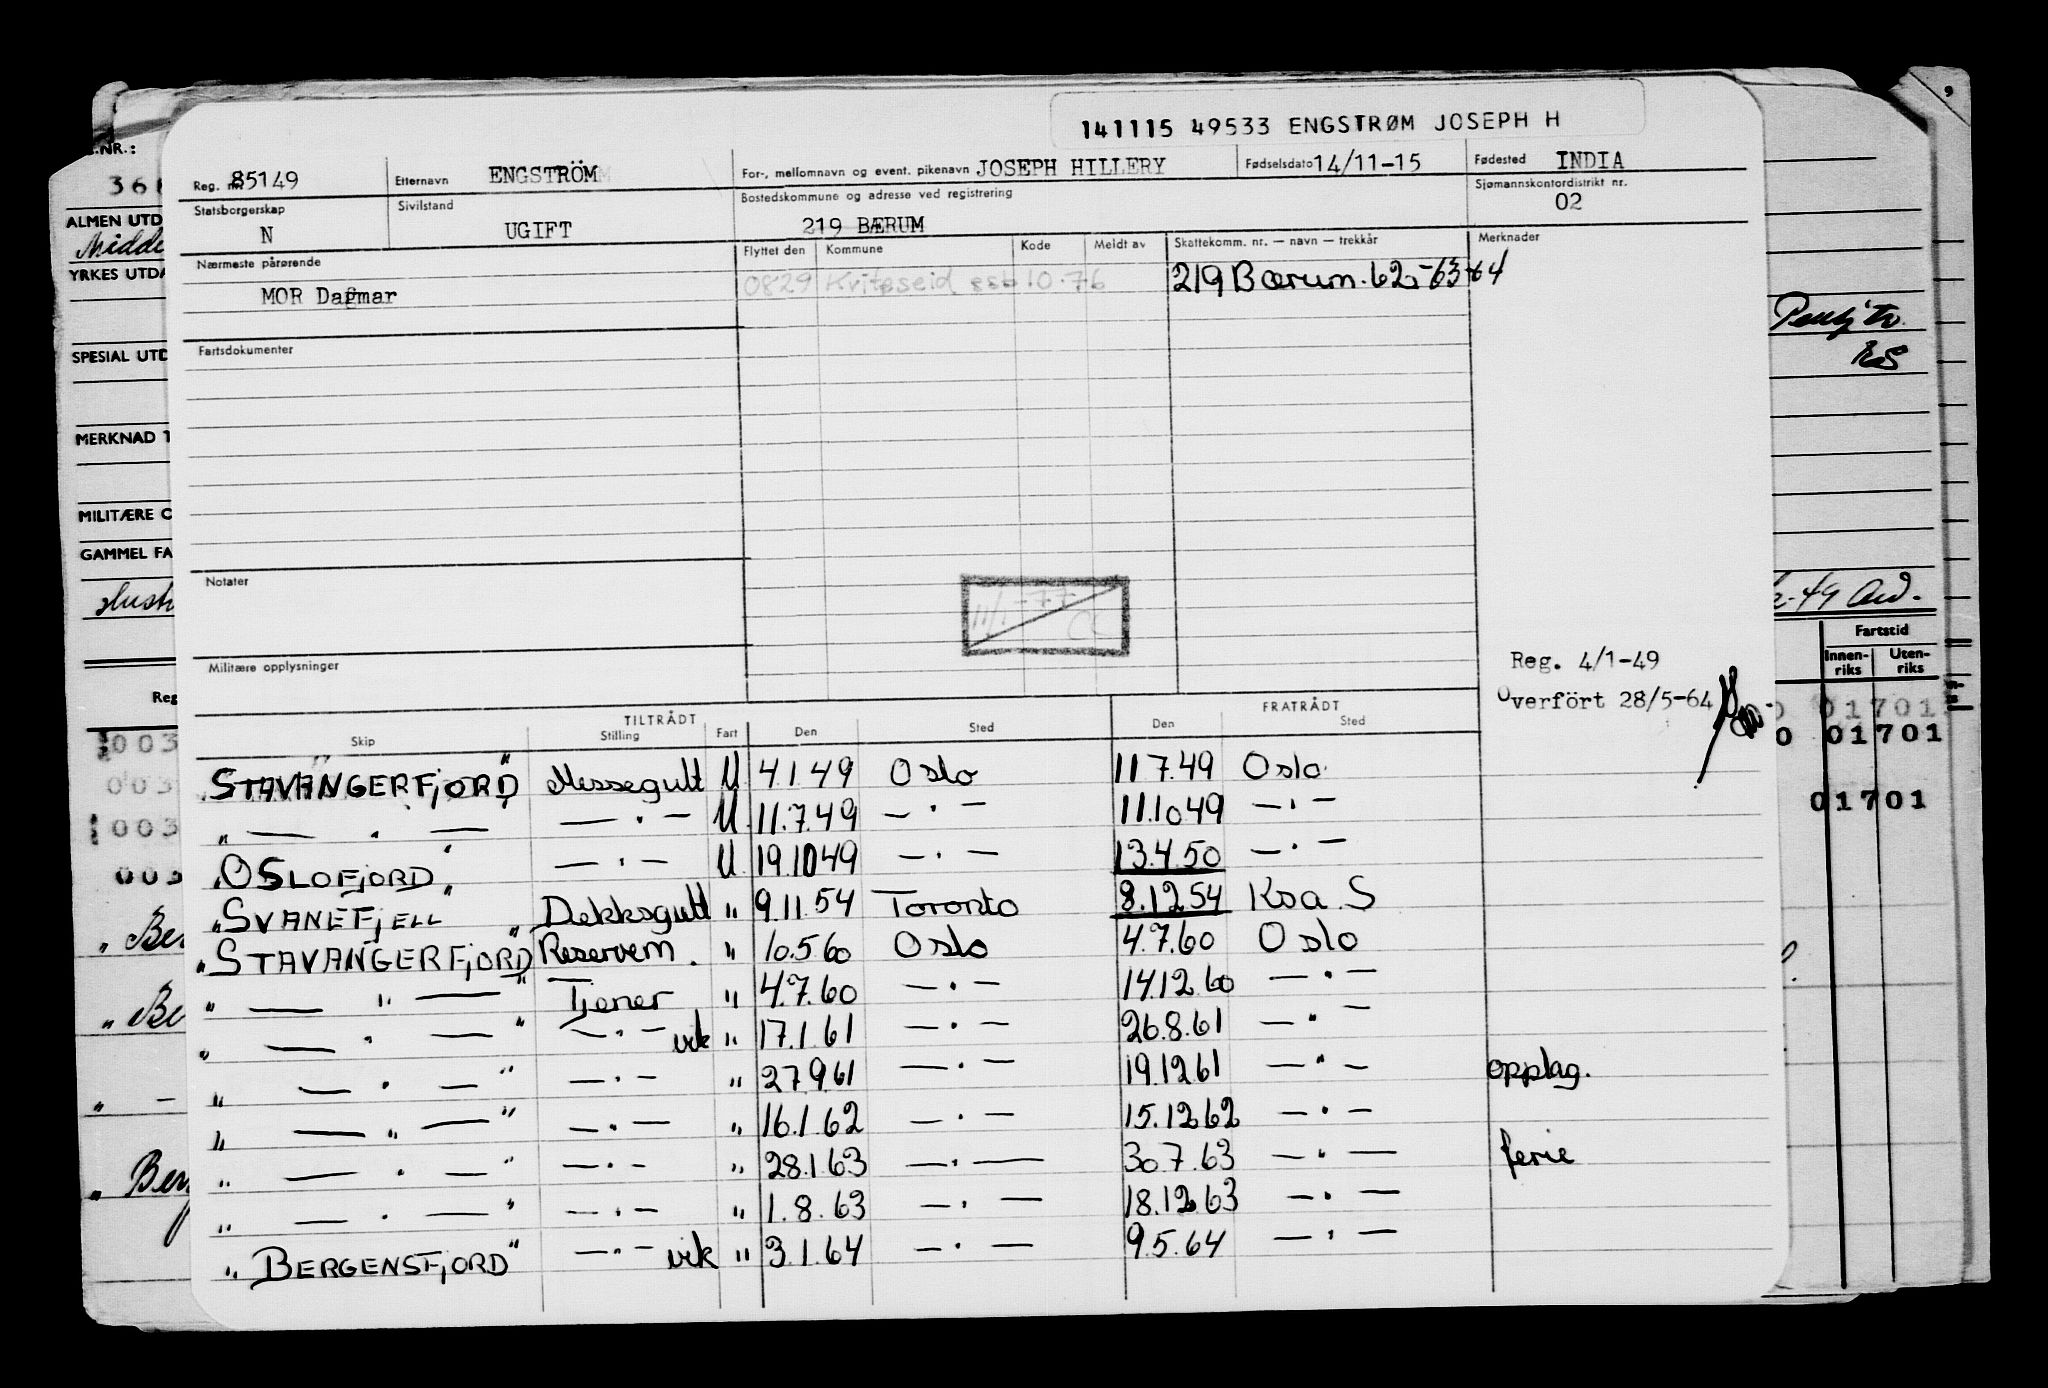 141115 49533 ENGSTRØM JOSEPH H
Reg. nr. 85149 Etternavn ENGSTRÖM For-, mellomnavn og event. pikenavn JOSEPH HILLERY Fødselsdato 14/11-15 Fødested INDIA
Statsborgerskap N Sivilstand UGIFT Bostedskommune og adresse ved registrering 219 BÆRUM Sjømannskontordistrikt nr. 02
Nærmeste pårørende Flyttet den Kommune Kode Meldt av Skattekomm. nr. — navn — trekkår Merknader
MOR Dagmar 0829 10.76 219 Bærum. 62-63-64
Fartsdokumenter
Notater
11/1-77
Militære opplysninger
Reg. 4/1-49
Overfört 28/5-64
TILTRÅDT FRATRÅDT
Skip Stilling Fart Den Sted Den Sted
"STAVANGERFJORD" Messegutt U 4.1.49 Oslo 11.7.49 Oslo
" — " — — " — U 11.7.49 — " — 11.10.49 — " —
"OSLOFJORD" — " — U 19.10.49 — " — 13.4.50 — " —
"SVANEFJELL" Dekksgutt " 9.11.54 Toronto 8.12.54 Koa. S
"STAVANGERFJORD" Reservem. " 10.5.60 Oslo 4.7.60 Oslo
" — " — " Tjener " 4.7.60 — " — 14.12.60 — " —
" — " — " — " — vik " 17.1.61 — " — 26.8.61 — " —
" — " — " — " — " 27.9.61 — " — 19.12.61 — " — opplag.
" — " — " — " — " 16.1.62 — " — 15.12.62 — " —
" — " — " — " — " 28.1.63 — " — 30.7.63 — " — ferie
" — " — " — " — " 1.8.63 — " — 18.12.63 — " —
"BERGENSFJORD" — " — vik " 3.1.64 — " — 9.5.64 — " —
.NR.:
ALMEN UTD
YRKES UTDA
SPESIAL UTD
MERKNAD T
MILITÆRE O
GAMMEL FA
Reg
003
003
003
003
" Ber
" Be
" —
" Berg
-49
Fartstid
Innen-riks Uten-riks
01701
01701
01701